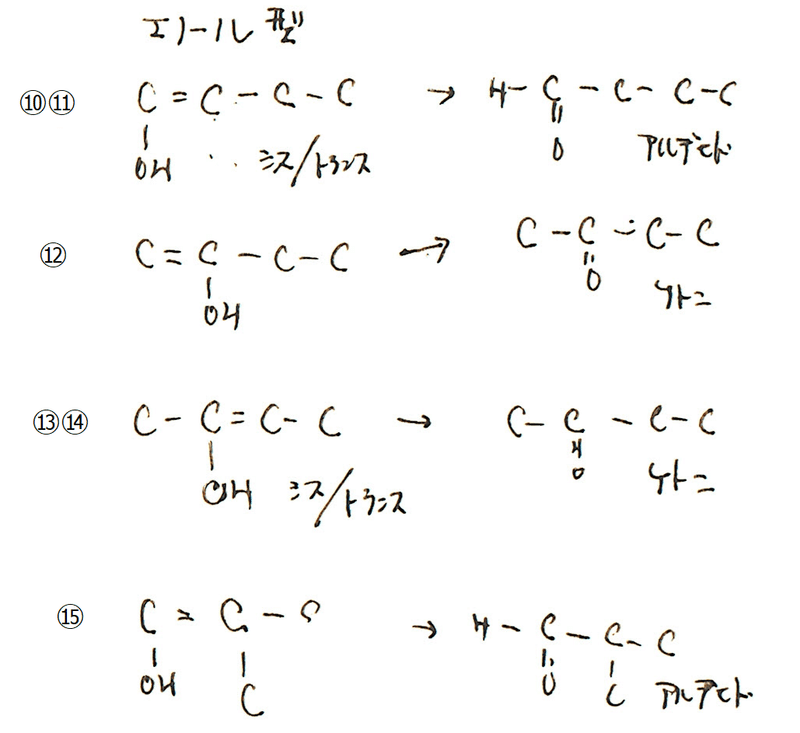 エノール型
⑩⑪ C = C - C - C → H - C - C - C - C
OH シス/トランス O アルデヒド
⑫ C = C - C - C → C - C - C - C
OH O ケトン
⑬⑭ C - C = C - C → C - C - C - C
OH シス/トランス O ケトン
⑮ C = C - C → H - C - C - C
OH C O C アルデヒド